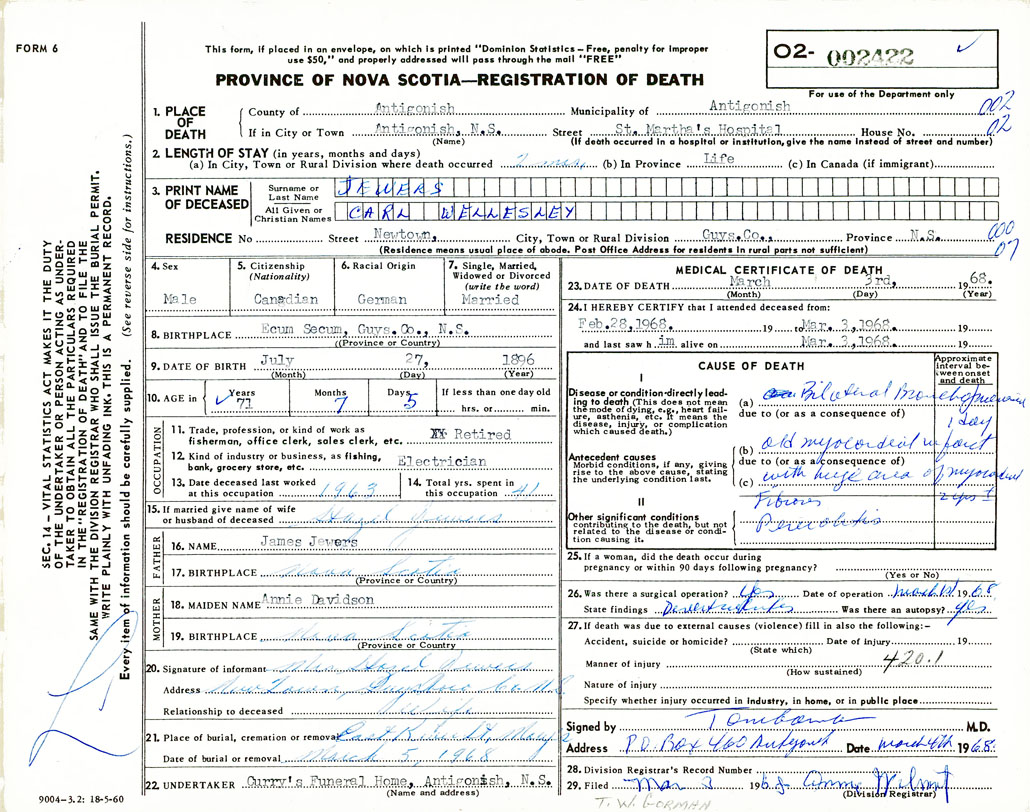 FORM 6
This form, if placed in an envelope, on which is printed "Dominion Statistics – Free, penalty for improper
use $50," and properly addressed will pass through the mail "FREE"
PROVINCE OF NOVA SCOTIA—REGISTRATION OF DEATH
02- 002422 ✓
For use of the Department only
002
02
1. PLACE OF DEATH
County of Antigonish Municipality of Antigonish
If in City or Town Antigonish, N.S. Street St. Martha's Hospital House No.
(Name) (If death occurred in a hospital or institution, give the name instead of street and number)
2. LENGTH OF STAY (in years, months and days)
(a) In City, Town or Rural Division where death occurred (b) In Province Life (c) In Canada (if immigrant)
3. PRINT NAME OF DECEASED
Surname or Last Name JEWERS
All Given or Christian Names CARL WELLESLEY
RESIDENCE No Street Newtown, City, Town or Rural Division Guys.Co., Province N.S.
000
07
(Residence means usual place of abode. Post Office Address for residents in rural parts not sufficient)
4. Sex
Male
5. Citizenship (Nationality)
Canadian
6. Racial Origin
German
7. Single, Married, Widowed or Divorced (write the word)
Married
8. BIRTHPLACE Ecum Secum, Guys.Co., N.S.
((Province or Country)
9. DATE OF BIRTH July 27, 1896
(Month) (Day) (Year)
10. AGE in ✓ Years 71 Months 7 Days 5 If less than one day old
hrs. or min.
OCCUPATION
11. Trade, profession, or kind of work as
fisherman, office clerk, sales clerk, etc. XX Retired
12. Kind of industry or business, as fishing,
bank, grocery store, etc. Electrician
13. Date deceased last worked
at this occupation 1963
14. Total yrs. spent in
this occupation 41
15. If married give name of wife
or husband of deceased Hazel Jewers
FATHER
16. NAME James Jewers
17. BIRTHPLACE Nova Scotia
(Province or Country)
MOTHER
18. MAIDEN NAME Annie Davidson
19. BIRTHPLACE Nova Scotia
(Province or Country)
20. Signature of informant Mrs Hazel Jewers
Address Newtown, Guysboro Co N.S.
Relationship to deceased Wife
21. Place of burial, cremation or removal East
Date of burial or removal March 5, 1968
22. UNDERTAKER Curry's Funeral Home, Antigonish, N.S.
(Name and address)
MEDICAL CERTIFICATE OF DEATH
23. DATE OF DEATH March 3rd, 1968.
(Month) (Day) (Year)
24. I HEREBY CERTIFY that I attended deceased from:
Feb.28,1968. 19 to Mar. 3,1968. 19
and last saw h im alive on Mar. 3,1968. 19
CAUSE OF DEATH
Approximate interval between onset and death
I
Disease or condition directly leading to death (This does not mean
the mode of dying, e.g., heart failure, asthenia, etc. It means the
disease, injury, or complication
which caused death.)
(a) Bilateral Bronchopneumonia
due to (or as a consequence of)
1 day
Antecedent causes
Morbid conditions, if any, giving
rise to the above cause, stating
the underlying condition last.
(b) old myocardial infarct
due to (or as a consequence of)
(c) with huge area of myocardial
Fibrosis
2 yrs ±
II
Other significant conditions
contributing to the death, but not
related to the disease or condition causing it.
25. If a woman, did the death occur during
pregnancy or within 90 days following pregnancy?
(Yes or No)
26. Was there a surgical operation? Yes Date of operation March 1st 1968
State findings Was there an autopsy? yes
27. If death was due to external causes (violence) fill in also the following:–
Accident, suicide or homicide? Date of injury 19
(State which)
420.1
Manner of injury
(How sustained)
Nature of injury
Specify whether injury occurred in Industry, in home, or in public place
Signed by M.D.
Address P.O. Box 460 Antigonish Date March 4th 1968
28. Division Registrar's Record Number
29. Filed Mar 196
(Division Registrar)
T. W. GORMAN
9004–3.2: 18-5-60
SEC. 14 – VITAL STATISTICS ACT MAKES IT THE DUTY
OF THE UNDERTAKER OR PERSON ACTING AS UNDER-
TAKER TO OBTAIN ALL THE PARTICULARS REQUIRED
IN THE "REGISTRATION OF DEATH" AND TO FILE THE
SAME WITH THE DIVISION REGISTRAR WHO SHALL ISSUE THE BURIAL PERMIT.
WRITE PLAINLY WITH UNFADING INK. THIS IS A PERMANENT RECORD.
Every item of information should be carefully supplied. (See reverse side for instructions.)